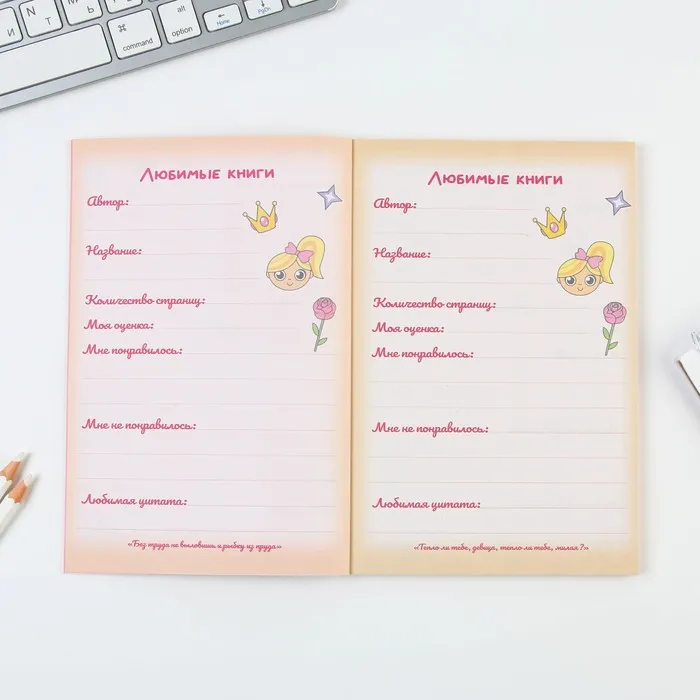 N
command
alt
option
Home
PgDn
Любимые книги
Автор:
Название:
Количество страниц:
Моя оценка:
Мне понравилось:
Мне не понравилось:
Любимая цитата:
«Без труда не выловишь и рыбку из пруда»
Любимые книги
Автор:
Название:
Количество страниц:
Моя оценка:
Мне понравилось:
Мне не понравилось:
Любимая цитата:
«Тепло ли тебе, девица, тепло ли тебе, милая?»